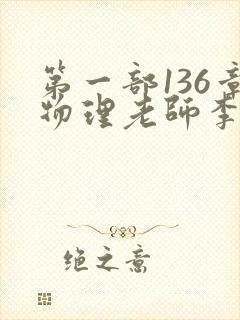 第一部136章
物理老師李
绝之意